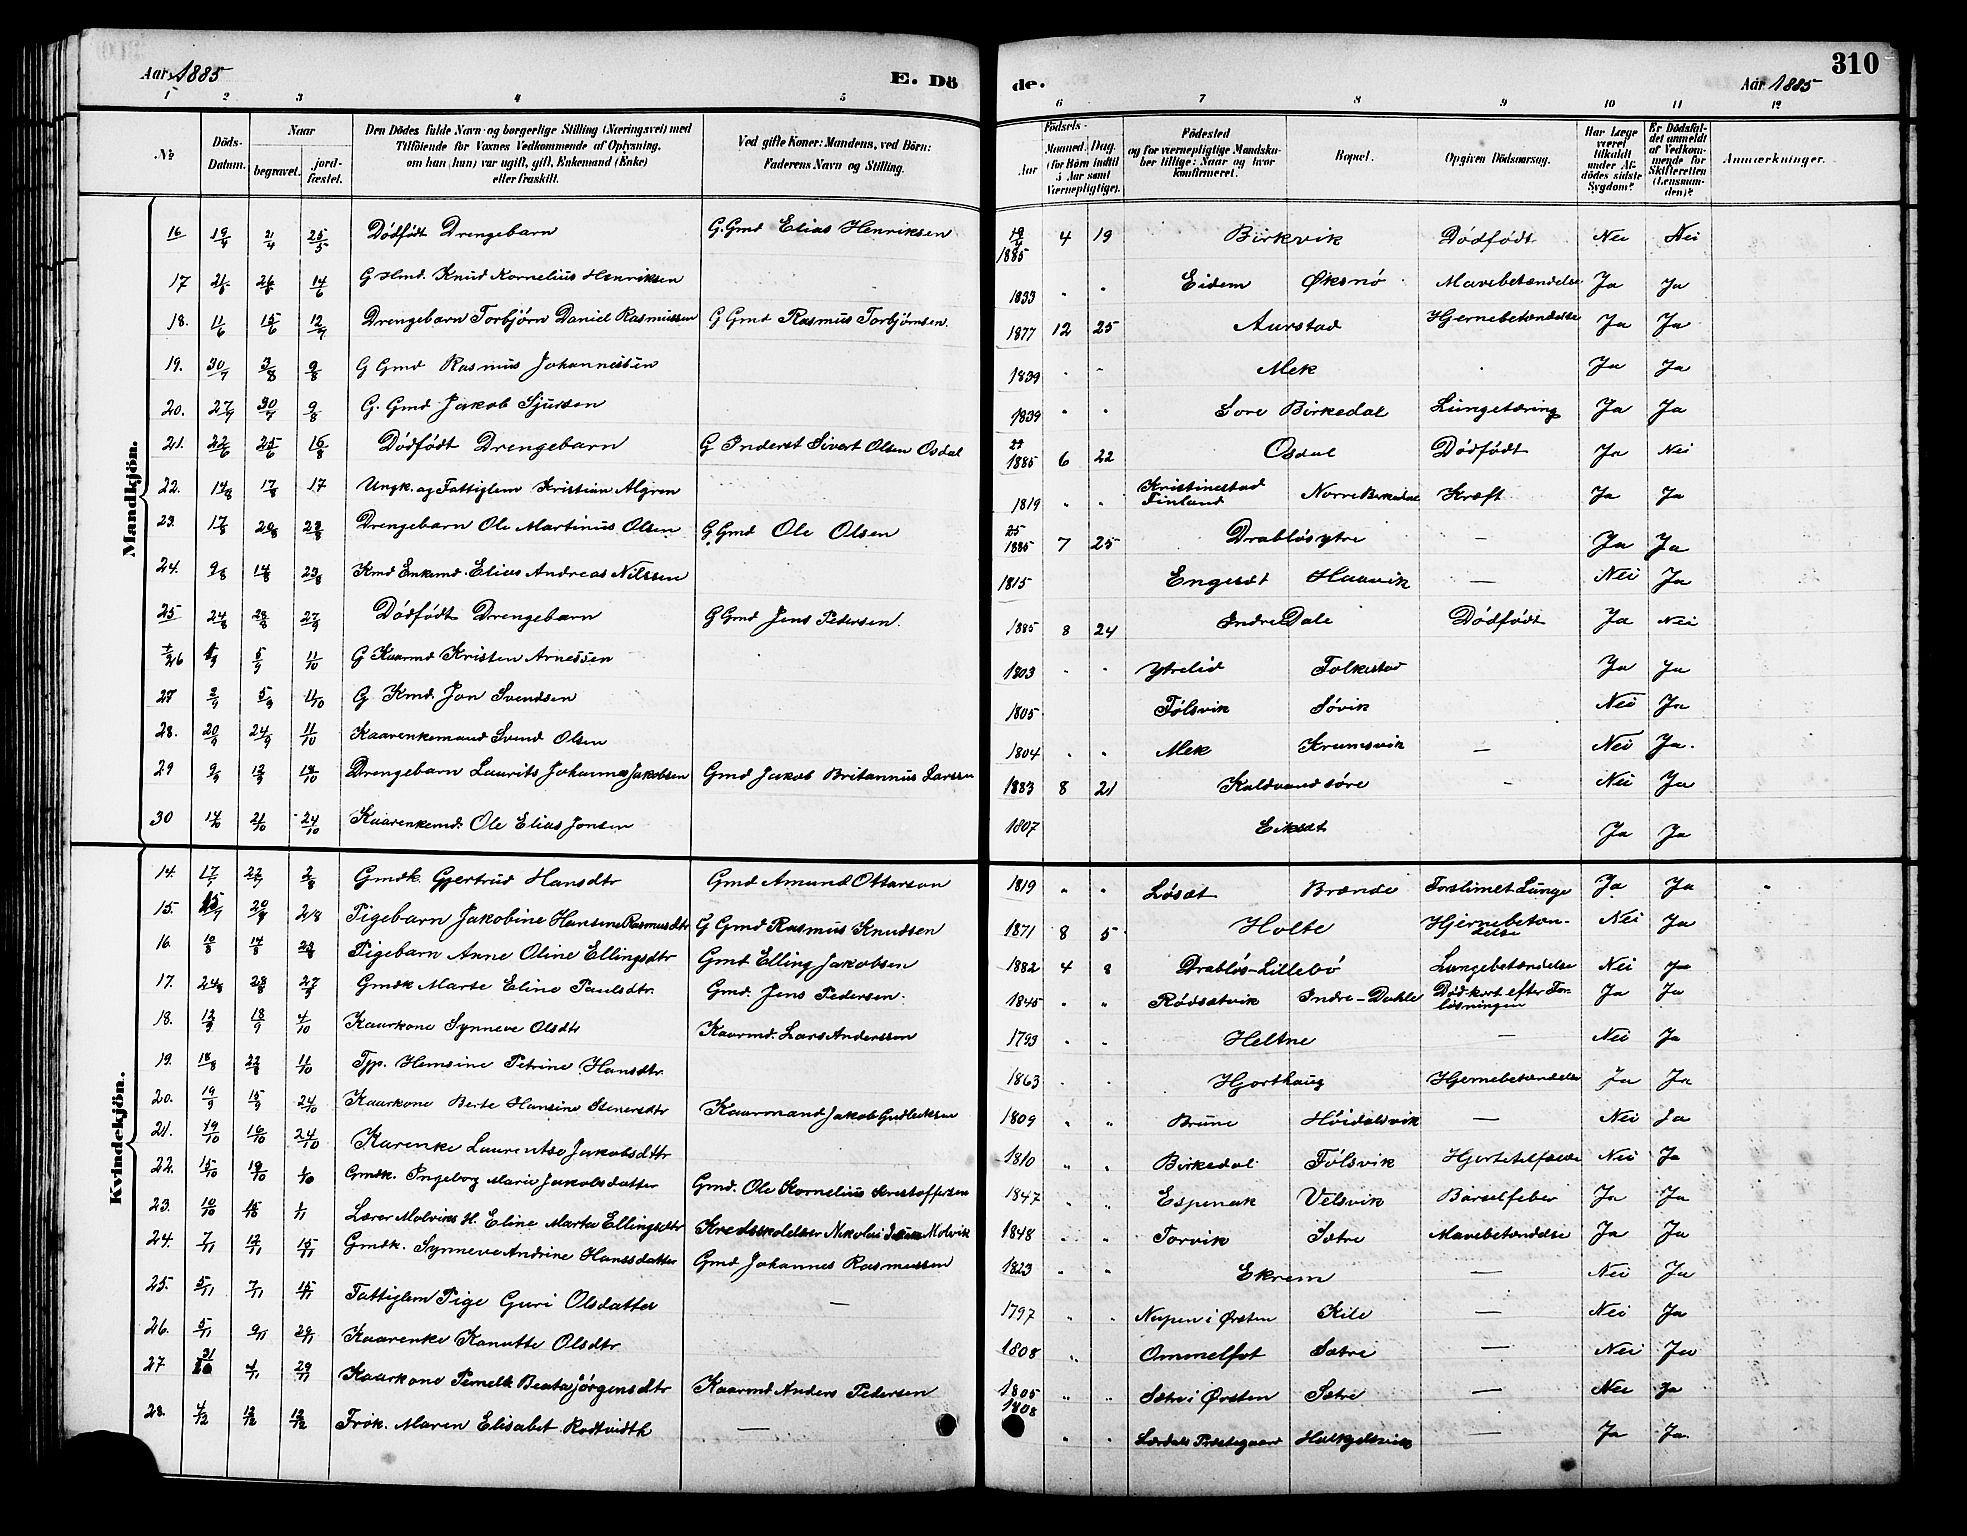 Aar 1885
E. Dö
de.
Aar 1885
310
1 2 3 4 5 6 7 8 9 10 11 12
No
Döds-Datum.
Naar begravet. jord-fæstet.
Den Dödes fulde Navn og borgerlige Stilling (Næringsvei) med Tilföiende for Voxnes Vedkommende af Oplysning, om han (hun) var ugift, gift, Enkemand (Enke) eller fraskilt.
Ved gifte Koner: Mandens, ved Börn: Faderens Navn og Stilling.
Födsels- Aar Maaned. Dag. (for Börn indtil 5 Aar samt Værnepligtige).
Födested og for værnepligtige Mandskaber tillige: Naar og hvor konfirmeret.
Bopæl.
Opgiven Dödsaarsag.
Har Læge været tilkaldt under Afdödes sidste Sygdom?
Er Dödsfaldet anmeldt af Vedkommende for Skifteretten (Lensmanden)?
Anmærkninger.
Mandkjön.
16 19/4 21/4 25/5 Dödfödt Drengebarn G. Gmd Elias Henriksen 19/4 1885 4 19 Birkvik Dödfödt Nei Nei
17 14/6 G Hmd. Knud Kornelius Henriksen 1833 " " Eidem Øksnö Mavebetændelse Ja Ja
18. 11/6 15/6 12/7 Drengebarn Torbjörn Daniel Rasmussen G Gmd Rasmus Torbjörnsen. 1877 12 25 Aurstad Hjernebetændelse Ja Ja
19. 30/7 3/8 9/8 G Gmd Rasmus Johannessen 1839 " " Mek Ja Ja
20. 27/7 30/7 9/8 G. Gmd Jakob Sjursen 1839 " " Sore Birkedal Lungetæring Ja Ja
21. 22/6 25/6 16/8 Dödfödt Drengebarn G Inderst Sivert Olsen Osdal 22 1885 6 22 Osdal Dödfödt Ja Nei
22. 14/8 17/8 17 Ungk. og Fattiglem Kristian Algren 1819 " " Kristinestad Finland Norre Birkedal Kræft Ja Ja
23. 17/8 20/8 23/8 Drengebarn Ole Martinus Olsen G. Gmd Ole Olsen 25 1885 7 25 Drablösytre — Ja Ja
24. 9/8 14/8 23/8 Kmd Enkemd. Elias Andreas Nilssen 1815 Engesæt Haavik — Nei Ja
25 24/8 28/8 27/9 Dödfödt Drengebarn G Gmd Jens Pedersen. 1885 8 24 Indre Dale Dödfödt Ja Nei
26 5/9 11/10 G Kaarmd Kristen Arnessen 1803 " " Ytrelid Folkestad Ja Ja
27 2/9 5/9 11/10 G Kmd. Jon Svendsen 1805 Fölsvik Sövik Nei Ja
28. 20/9 24/9 11/10 Kaarenkemand Svend Olsen 1804 " " Mek Krumsvik — Nei Ja.
29 9/9 13/9 18/10 Drengebarn Laurits Johannes Jakobsen Gmd Jakob Britannus Larssen 1883 8 21 Kaldvand söre — Nei Ja
30 14/10 21/10 24/10 Kaarenkemd. Ole Elias Jonsen 1807 Eiksæt Ja Ja
Kvindekjön.
14. 17/7 22/7 2/8 Gmdk. Gjertrud Hansdtr Gmd Amund Ottarson 1819 " " Løsæt Brænde Forslimet Lunge Ja Ja "
15. 28 Pigebarn Jakobine Hansine Rasmusdtr G Gmd Rasmus Knudsen 1871 8 5 Holte Hjernebeton-delse Nei Ja
16. 10/8 14/8 23/8 Pigebarn Anne Oline Ellingsdtr Gmd Elling Jakobsen 1882 4 8 Drablös-Lillebö Lungebetændelse Nei Ja
17. 24/8 28/8 27/9 Gmdk Marte Eline Paulsdtr. Gmd. Jens Pedersen. 1845 " " Rödsætvik Indre-Dahle Död kort efter For-lösningen Ja Ja
18. 13/9 18/9 4/10 Kaarkone Synneve Olsdtr Kaarmd. Lars Anderssen 1793 " " Heltne — Nei Ja
19. 18/8 22/8 11/10 Tjp. Hemsine Petrine Hansdtr. 1863 " " Hjorthaug Hjernebetændelse Ja Ja
20. 19/9 15/9 24/10 Kaarkone Berte Hansine Stenersdtr Kaarmand Jakob Gudleiksen 1809 " " Brune Höidalsvik — Nei Ja
21. 19/10 16/10 24/10 Karenke Laurentse Jakobsdtr 1810 " " Birkedal Fölsvik Hjertetilfælde Nei Ja
22. 15/10 19/10 1/10 Gmdk. Ingeborg Marie Jakobsdatter Gmd. Ole Kornelius Kristoffersen 1847 " " Espenak Velsvik Barselfeber Ja Ja
23. 10/10 15/10 1/11 Lærer Molviks H. Eline Marta Ellingsdtr Kredsskolelærer Nikolai Molvik 1848 " " Torvik Sætre Mavebetændelse Ja Ja
24. 7/11 12/11 15/11 Gmdk. Synneve Andrine Hansdatter Gmd Johannes Rasmussen 1823 " " Ekrem — Nei Ja
25. 5/11 7/11 15/11 Fattiglem Pige Guri Olsdatter — 1797 " " Nupen i Ørsten Kile — Nei Ja
26. 5/11 9/11 29/11 Kaarenke Kanutte Olsdtr 1808 " Ommelfot Sætre — Nei Ja
27 31/10 4/11 29/11 Kaarkone Pernelle Beata Jörgensdtr Kaarmd Anders Pedersen 1805 " " Sætre i Ørsten Sætre — Nei Ja
28. 4/12 12/12 13/12 Frök. Maren Elisabet Rodtvidth — 1808 " " Lærdals Præstegaard — Ja Ja